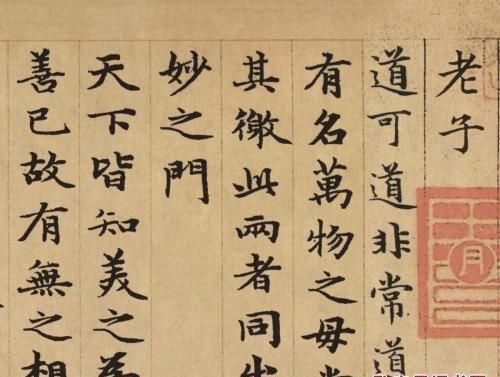 老子
道可道非常道
有名萬物之母常
其徼此兩者同出
妙之門
天下皆知美之為
善已故有無之相
月